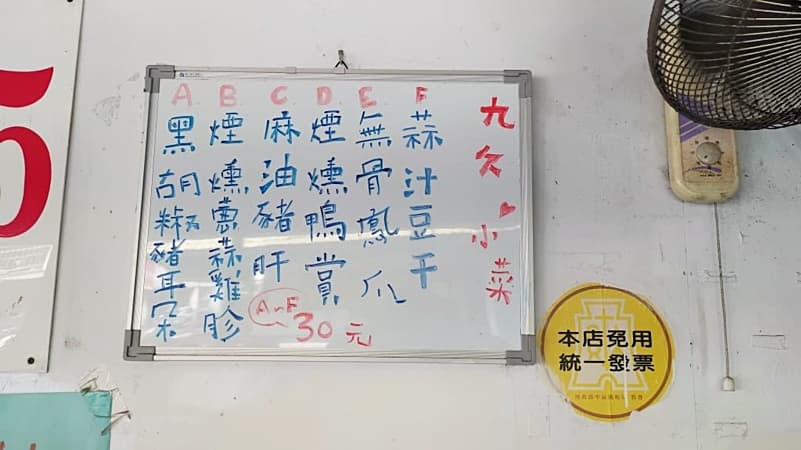 九久♥小菜
A 黑胡椒豬耳朵
B 煙燻蔥蒜雞胗
C 麻油豬肝
D 煙燻鴨賞
E 無骨鳳爪
F 蒜汁豆干
A~F
30元
本店免用
統一發票